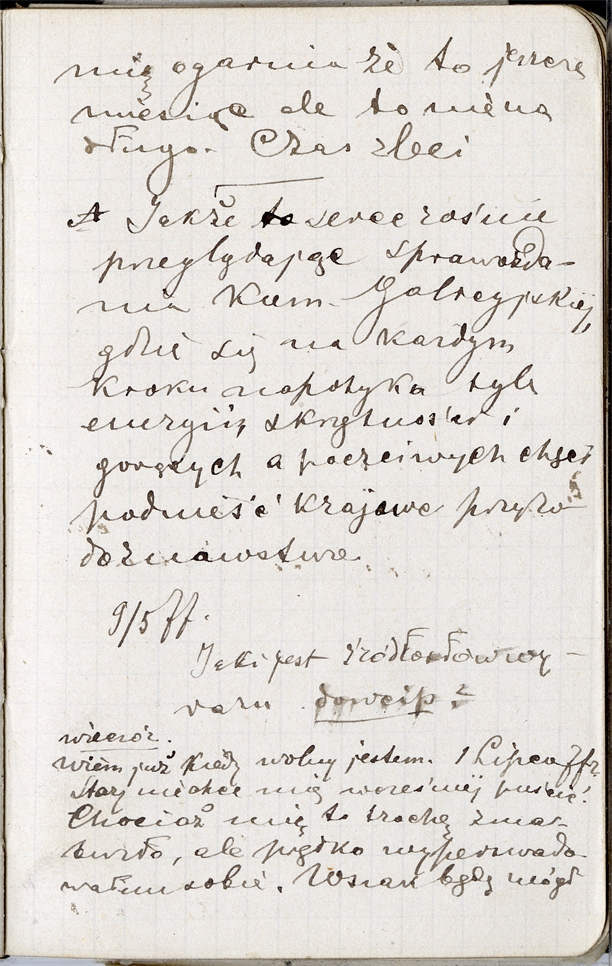 mię ogarnia że to jeszcze
miesiąc ale to nie na
długo. Czas zleci
A Jakże to serce rośnie
przeglądając sprawozda-
nia Kom. Galicyjskiej,
gdzie się na każdym
kroku napotyka tyle
energii, skrzętności i
gorących a poczciwych chęci
podnieść krajowe przyro
doznawstwo
9/5 77.
Jaki jest źródłosłów wy-
razu dowcip?
wieczór.
Wiem już kiedy wolny jestem. 1 Lipca 77r.
Stary nie chce mię wcześniej puścić.
Chociaż mię to trochę zmar-
twiło, ale prędko wyperswado-
wałem sobie. Wszak będę mógł